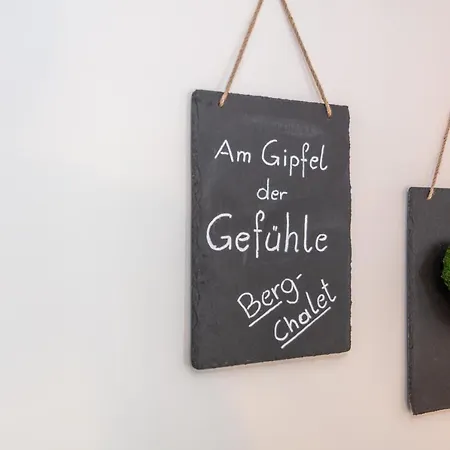 Am Gipfel
der
Gefühle
Berg-
Chalet